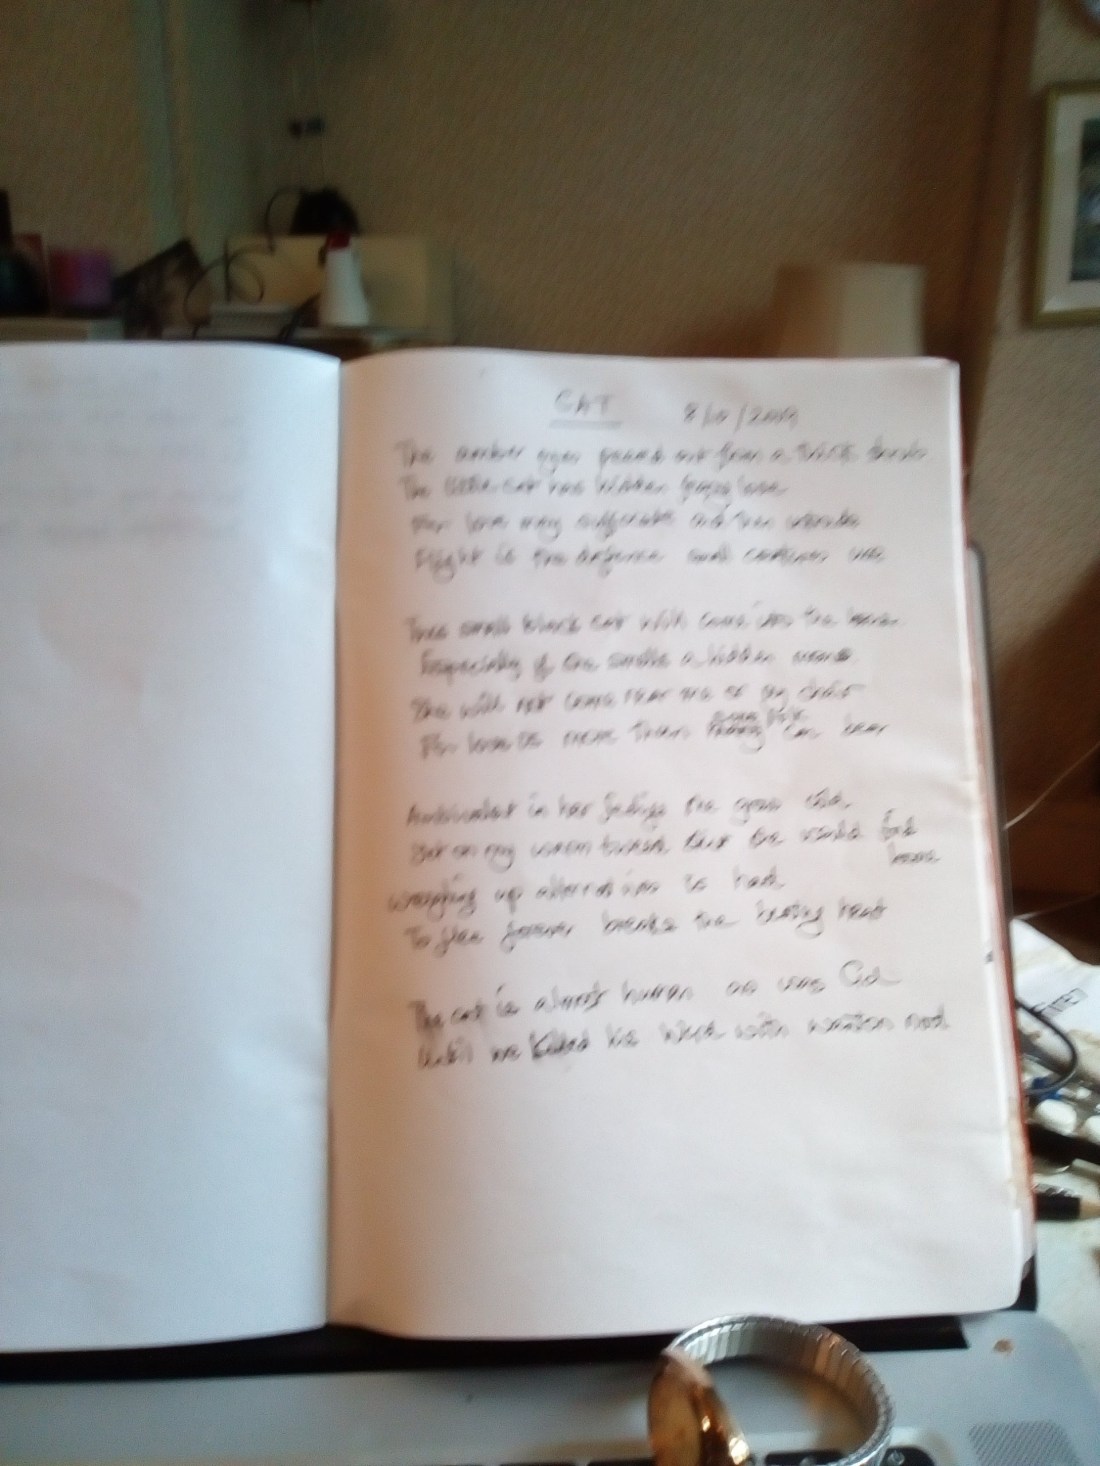 CAT 8/10/2009
The amber eyes peered out from a thick shrub
The little cat has hidden from love
For love may suffocate and then intrude
Flight is the defence small creatures use
This small black cat will come into the house
Especially if she smells a hidden mouse
She will not come near me or my chair
For love is more than can bear
Ambivalent in her feelings she grows cold
But on my warm she would
find
home
Weighing up alternatives is hard
To flee forever breaks the beating heart
The cat is almost human as was God
Until we killed his Word with wanton nod